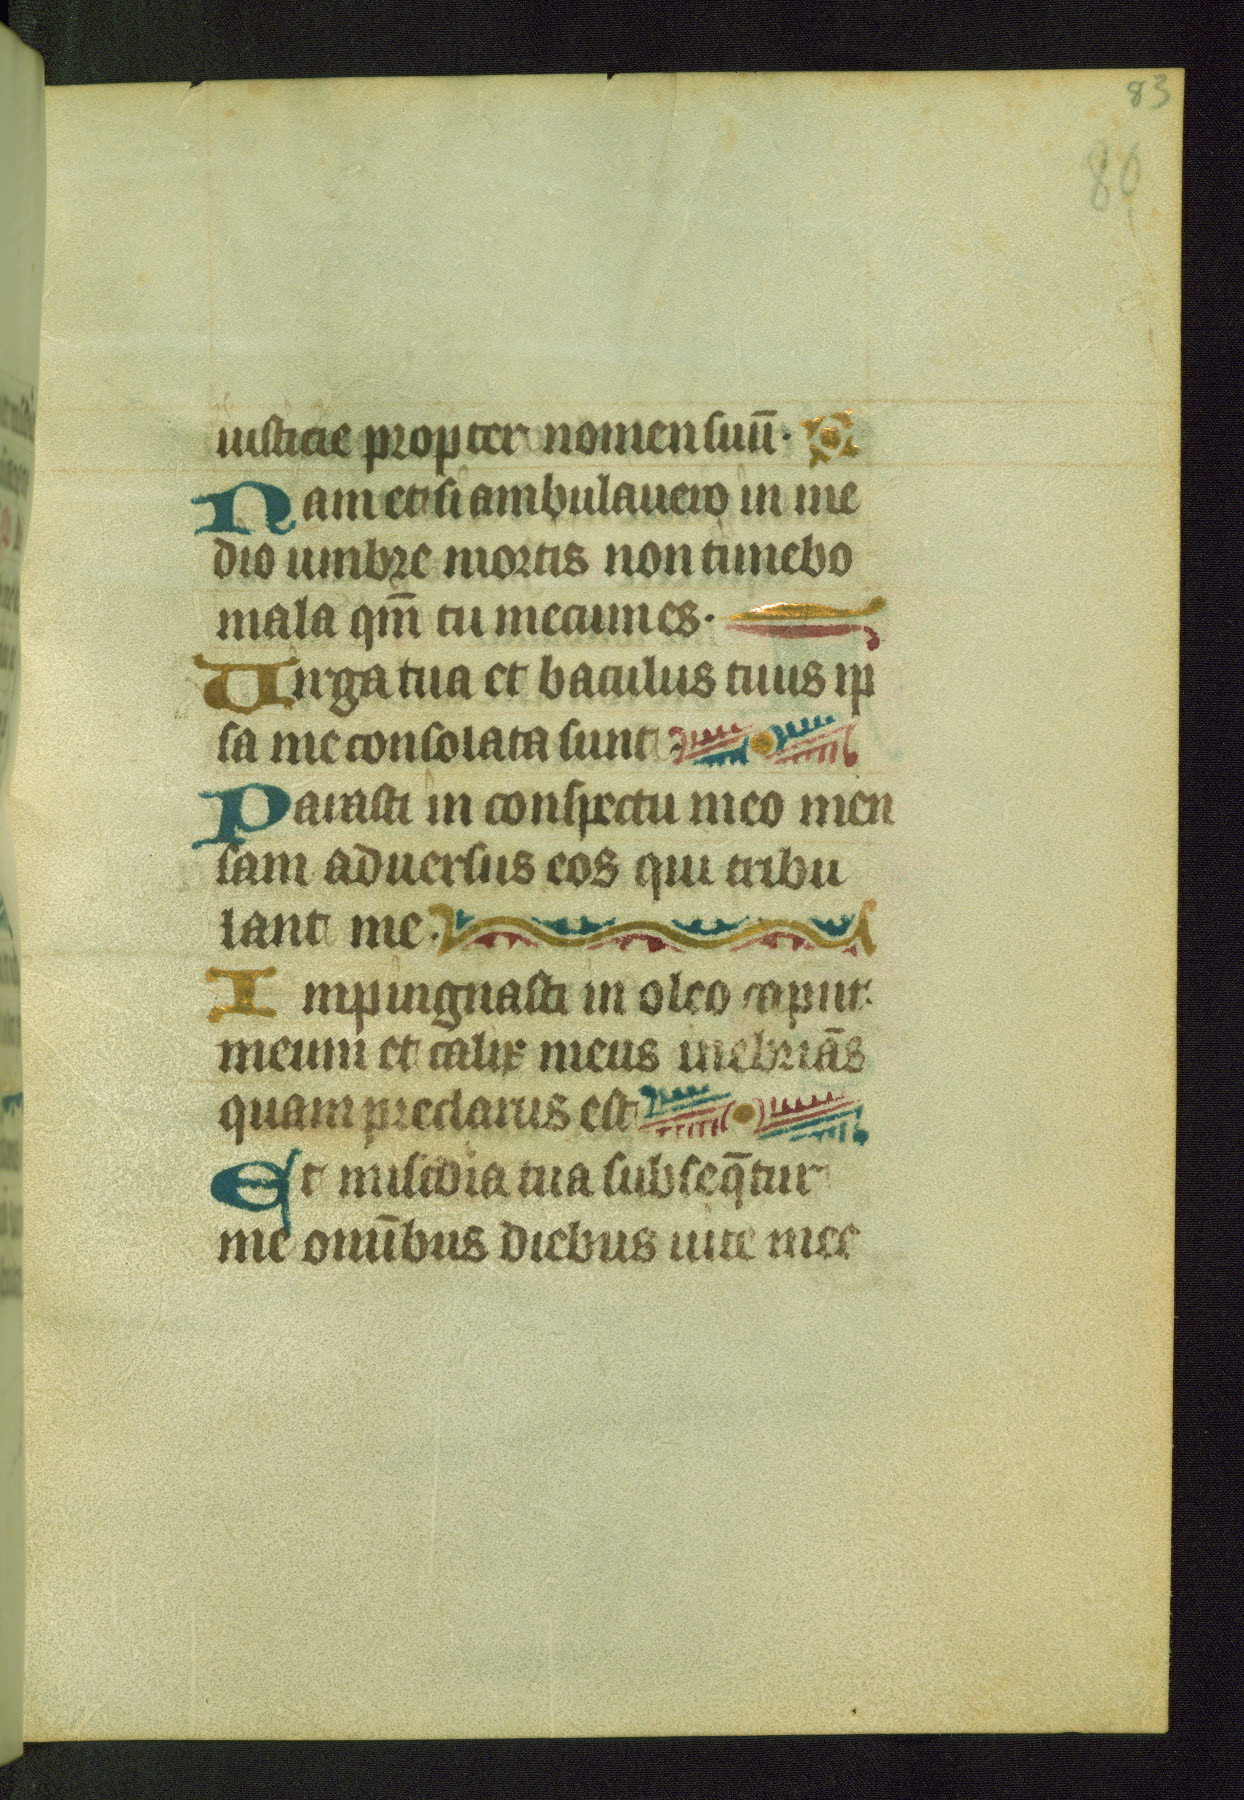 83
80
iusticie propter nomen suū·
Nam et si ambulauero in me
dio umbre mortis non timebo
mala qm̄ tu mecum es·
Uirga tua et baculus tuus ip
sa me consolata sunt·
Parasti in conspectu meo men
sam aduersus eos qui tribu
lant me·
Impinguasti in oleo caput
meum et calix meus inebriās
quam preclarus est
Et mis̄cdia tua subseq̄tur
me omībus diebus uite mee